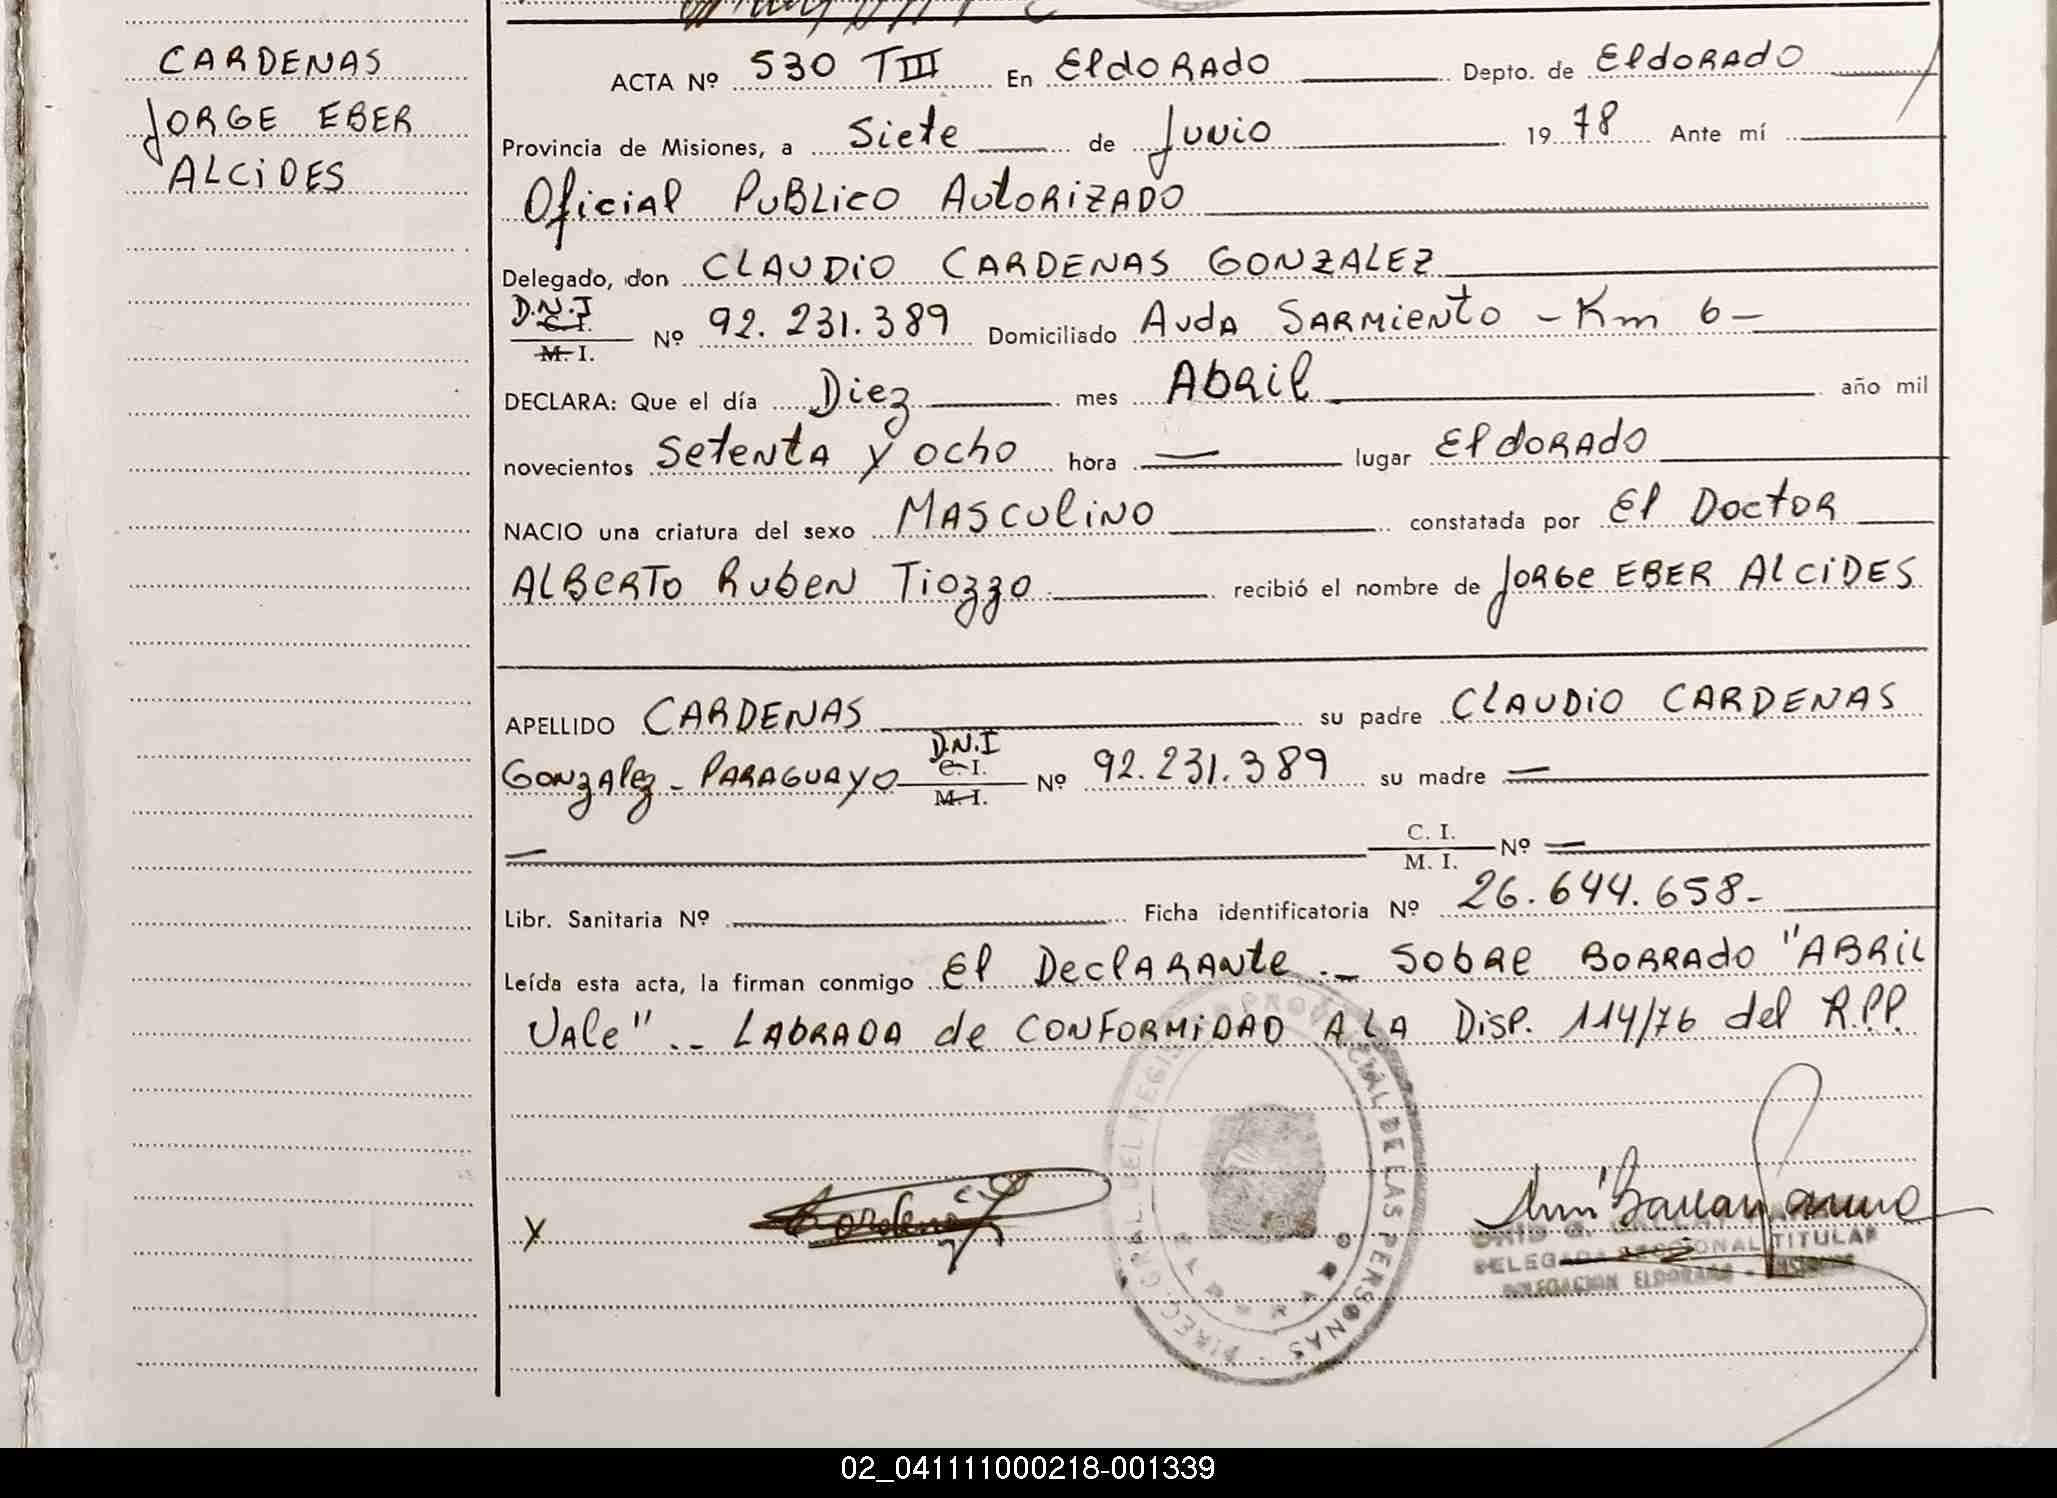 CARDENAS
JORGE EBER
ALCIDES
ACTA Nº 530 TIII En ElDORADO Depto. de ElDORADO
Provincia de Misiones, a Siete de Junio 1978 Ante mí
Oficial PUBLICO AUTORIZADO
Delegado, don CLAUDIO CARDENAS GONZALEZ
D.N.I
C. I.
M. I. Nº 92.231.389 Domiciliado Avda SARMIENTO - Km 6 -
DECLARA: Que el día Diez mes Abril año mil
novecientos Setenta y ocho hora — lugar ElDORADO
NACIO una criatura del sexo MASCULINO constatada por El Doctor
ALBERTO RUBEN TIOZZO recibió el nombre de JORGE EBER ALCIDES
APELLIDO CARDENAS su padre CLAUDIO CARDENAS
D.N.I
GONZALEZ - PARAGUAYO C. I. M. I. Nº 92.231.389 su madre —
— C. I. M. I. Nº —
Libr. Sanitaria Nº Ficha identificatoria Nº 26.644.658-
Leída esta acta, la firman conmigo El Declarante .- SOBRE BORRADO "ABRIL
VALE" .- LABRADA de CONFORMIDAD A LA Disp. 114/76 del R.P.P.
X
DIREC. GRAL. DEL REGISTRO PROVINCIAL DE LAS PERSONAS
TITULAR
DELEGACION ELDORADO - MISIONES
02_041111000218-001339